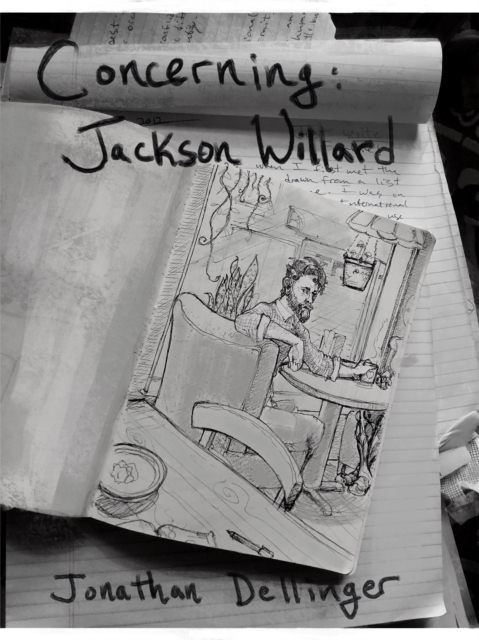 Concerning:
2012
Jackson Willard
when I first met the
drawn from a list
I was on
international
use
Jonathan Dellinger